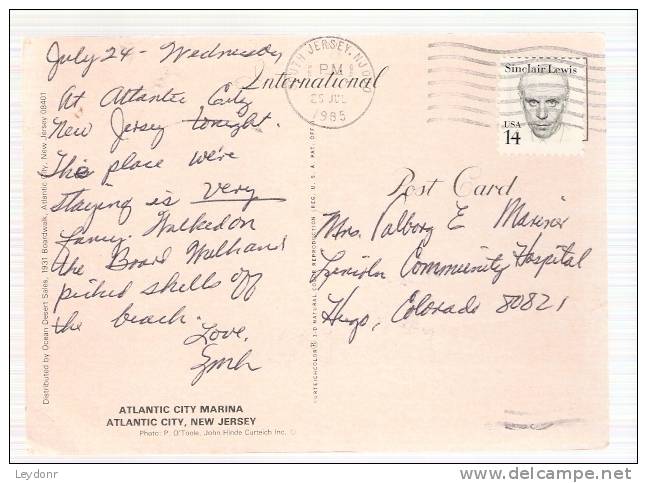 July 24 - Wednesday
At Atlantic City
New Jersey tonight.
This place we're
staying is very
fancy. Walked on
the Board Walk and
picked shells off
the beach.
Love,
ATLANTIC CITY MARINA
ATLANTIC CITY, NEW JERSEY
Photo: P. O'Toole, John Hinde Curteich Inc. ©
Distributed by Ocean Desert Sales, 1931 Boardwalk, Atlantic City, New Jersey 08401
CURTEICHCOLOR® 3-D NATURAL COLOR REPRODUCTION (REG. U.S.A. PAT. OFF.)
International
Post Card
JERSEY, NJ
PM
25 JUL
1985
Sinclair Lewis
USA
14
Mrs. Valborg E Mariner
Lincoln Community Hospital
Hugo, Colorado 80821
Leydonr
www.delcampe.net